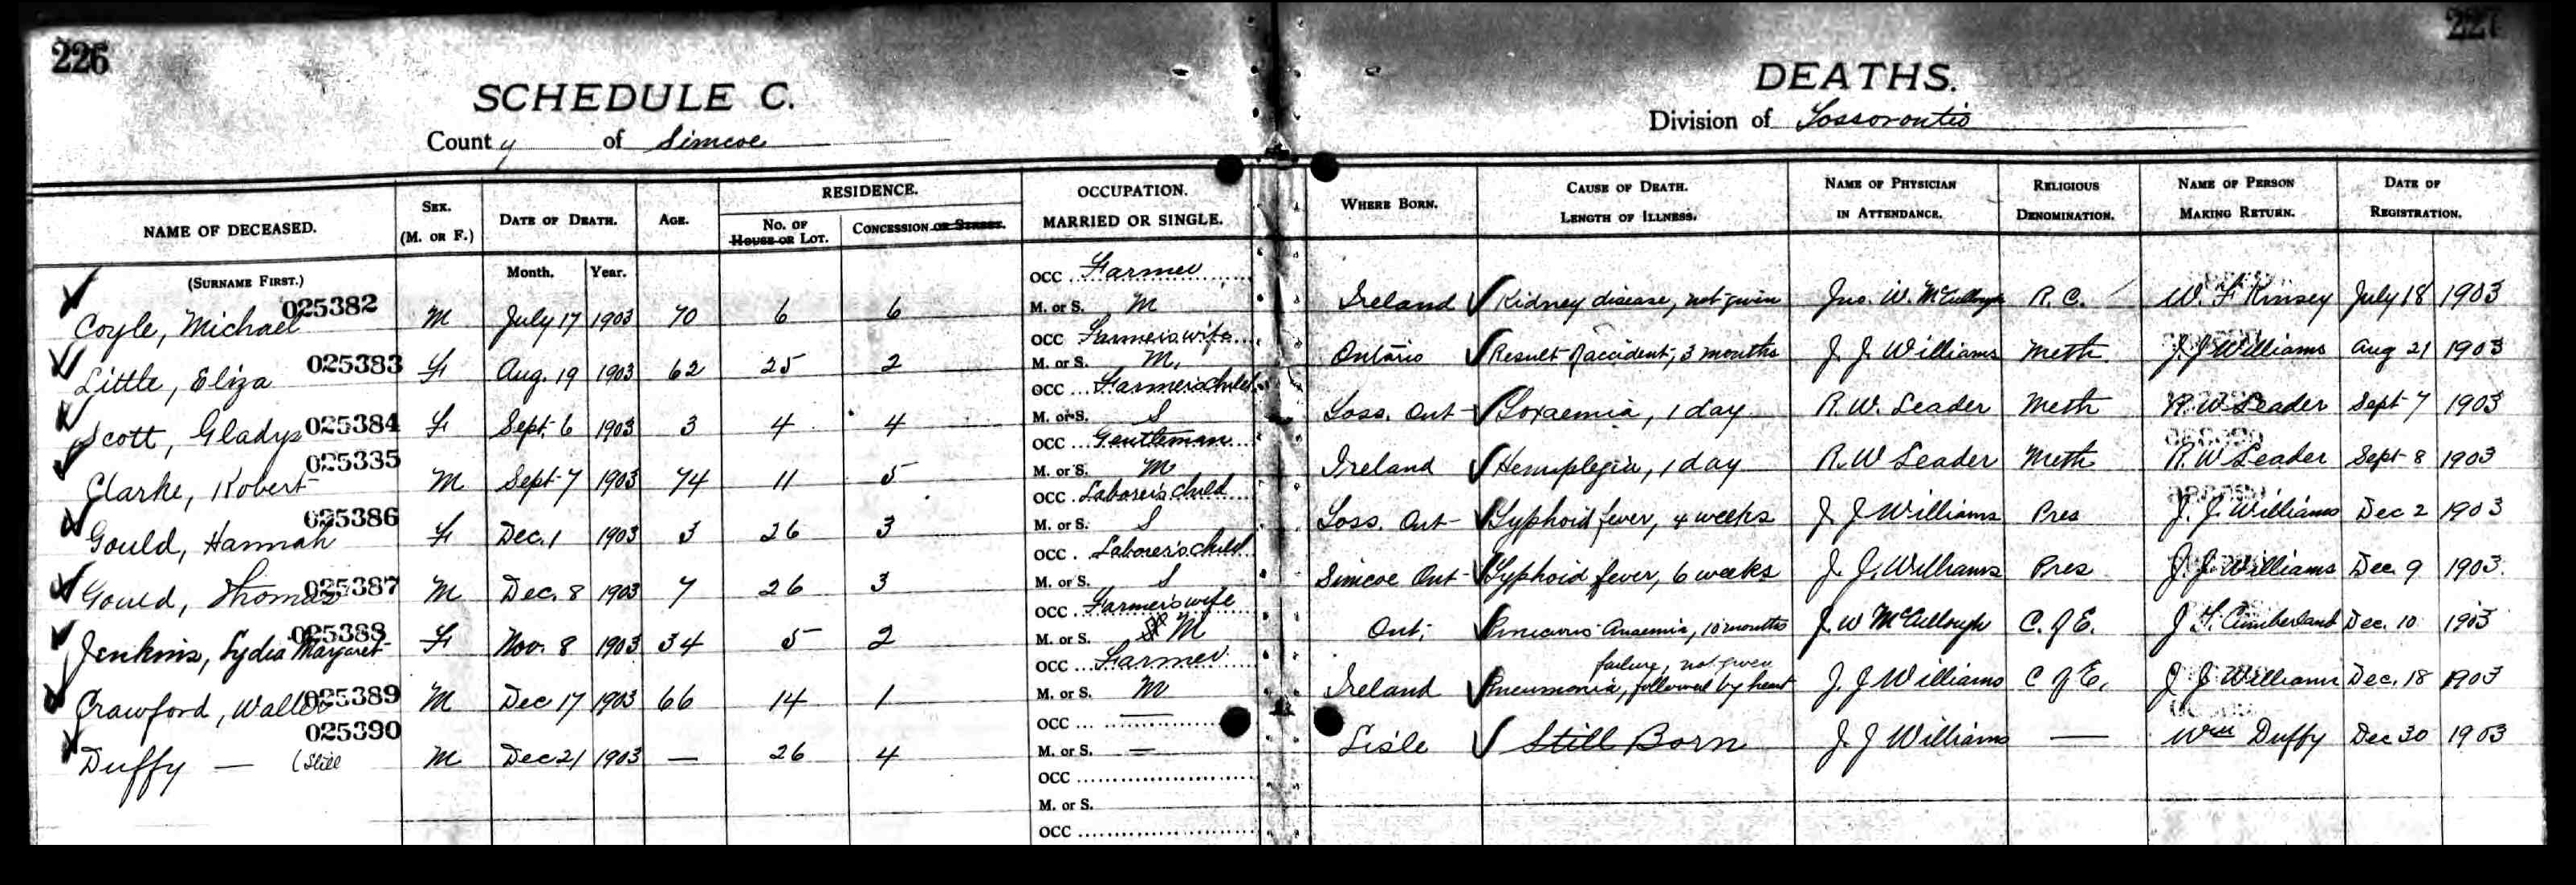 226
227
SCHEDULE C.
DEATHS.
County of Simcoe
Division of Tossorontio
NAME OF DECEASED. SEX. (M. OR F.) DATE OF DEATH. AGE. RESIDENCE. NO. OF HOUSE OR LOT. CONCESSION OR STREET. OCCUPATION. MARRIED OR SINGLE. WHERE BORN. CAUSE OF DEATH. LENGTH OF ILLNESS. NAME OF PHYSICIAN IN ATTENDANCE. RELIGIOUS DENOMINATION. NAME OF PERSON MAKING RETURN. DATE OF REGISTRATION.
(SURNAME FIRST.) Month. Year.
025382
OCC Farmer
Coyle, Michael M July 17 1903 70 6 6 M. or S. M Ireland Kidney disease, not given Jno. W. McCullough R. C. W. F. Kinsey July 18 1903
025383
OCC Farmer's wife
Little, Eliza F Aug. 19 1903 62 25 2 M. or S. M. Ontario Result of accident, 3 months J. J. Williams Meth. J. J. Williams Aug 21 1903
025384
OCC Farmer's child
Scott, Gladys F Sept. 6 1903 3 4 4 M. or S. S Toss. Ont Toxaemia, 1 day R. W. Leader Meth R. W. Leader Sept 7 1903
025335
OCC Gentleman
Clarke, Robert M Sept 7 1903 74 11 5 M. or S. M Ireland Hemiplegia, 1 day R. W Leader Meth R. W Leader Sept 8 1903
025386
OCC Laborer's child
Gould, Hannah F Dec. 1 1903 3 26 3 M. or S. S Toss. Ont Typhoid fever, 4 weeks J. J Williams Pres J. J. Williams Dec 2 1903
025387
OCC Laborer's child
Gould, Thomas M Dec. 8 1903 7 26 3 M. or S. S Simcoe Ont Typhoid fever, 6 weeks J. J. Williams Pres J. J. Williams Dec. 9 1903.
025388
OCC Farmer's wife
Jenkins, Lydia Margaret F Nov. 8 1903 34 5 2 M. or S. M Ont. Anaemia, 10 months J. W McCullough C. of E. Dec. 10 1903
025389
OCC Farmer
Crawford, Walter M Dec 17 1903 66 14 1 M. or S. M Ireland Pneumonia, followed by heart failure, not given J. J Williams C of E. J. J Williams Dec. 18 1903
025390
OCC —
Duffy — (Still M Dec 21 1903 — 26 4 M. or S. — Lisle Still Born J. J Williams — Wm Duffy Dec 30 1903
OCC
M. or S.
OCC